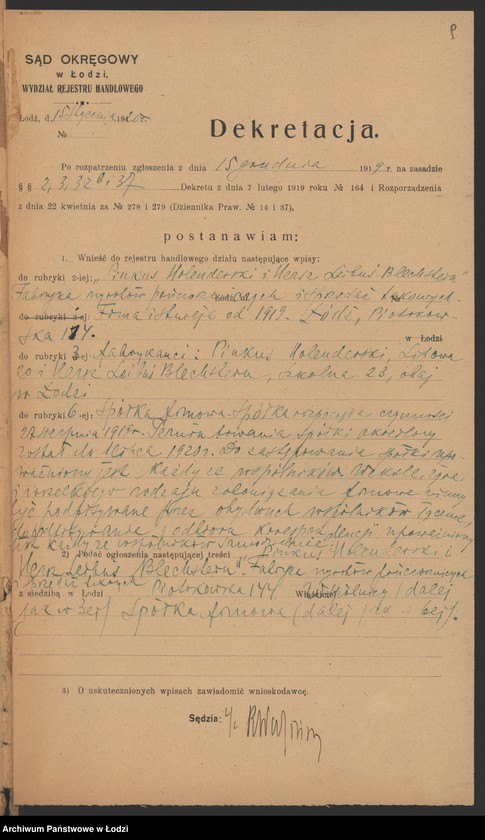 SĄD OKRĘGOWY
w Łodzi,
WYDZIAŁ REJESTRU HANDLOWEGO
Łódź, d. 15 stycznia 1920 r.
№
Dekretacja.
Po rozpatrzeniu zgłoszenia z dnia 15 grudnia 1919 r. na zasadzie
§ § 2, 3, 32 b i 37 Dekretu z dnia 7 lutego 1919 roku № 164 i Rozporządzenia
z dnia 22 kwietnia za № 278 i 279 (Dziennika Praw. № 14 i 37).
postanawiam:
1. Wnieść do rejestru handlowego działu następujące wpisy:
do rubryki 2-iej: „Pinkus Holenderski i Hersz Leibuś Blechsztern"
Fabryka wyrobów pończoszniczych i sprzedaż takowych.
do rubryki 3-ej: Firma istnieje od 1919. Łódź, Piotrkow-
ska 144. w Łodzi
do rubryki 3 ej: Fabrykanci: Pinkus Holenderski, Lipowa
20 i Hersz Leibuś Blechsztern, Szkolna 23, obaj
w Łodzi
do rubryki 6-ej: Spółka firmowa. Spółka rozpoczęła czynności
sierpnia 1919 r. Termin trwania spółki określony
został do 1 lipca 1920 r. Do zastępowania spółki upo-
ważniony jest każdy ze wspólników. Weksle, żyra
i wszelkiego rodzaju zobowiązania firmowe winny
być podpisywane przez obydwóch wspólników łącznie,
do podpisywania i odbioru korespondencji upoważniony
jest każdy ze wspólników samodzielnie.
2) Podać ogłoszenia następującej treści „Pinkus Holenderski i
Hersz Leibuś Blechsztern". Fabryka wyrobów pończoszniczych
i sprzedaż takowych
z siedzibą w Łodzi Piotrkowska 144. Właściciel Wspólnicy / dalej
jak w 3 ej / Spółka firmowa (dalej / jak w 6 ej /.
3) O uskutecznionych wpisach zawiadomić wnioskodawcę.
Sędzia:
Archiwum Państwowe w Łodzi